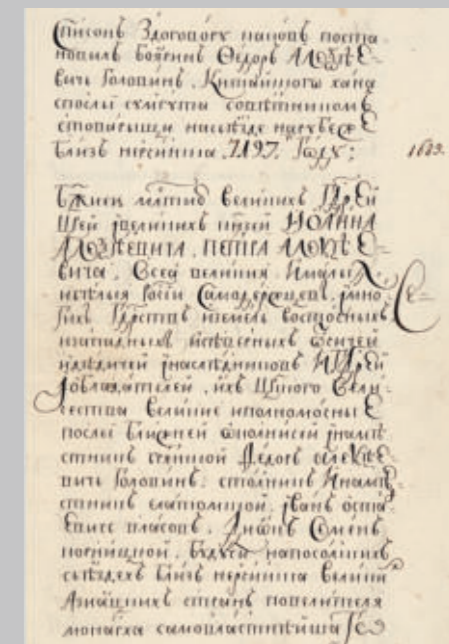 Список З договору каков поста
новил боярин Федор Алексѣе
вичь Головин Китайского хана
с послы сумгута советником
с товарыщи на съѣзде на рубеже
близ Нерчинска 7197 Году:
1689.
Бжиею млстию великих Гдрей
Црей и великих кнзей ИОАННА
АЛЕѮѢЕВИЧА, ПЕТРА АЛЕѮѢЕ
вича, Всеа великия И малыя
и бѣлыя Росии Самодержцев, и мно
гих Гдрств и земель восточных
и западных и сѣверных отчичей
и дѣдичей и наследников И Гдрей
и облаадателей, их Цркого Вели
чества великие и полномочные
послы ближней околничей и намѣ
стник брянской Федор Алексѣе
вичь Головин, столник И намѣ
стник елатомской, Иван оста
евичь власов, Диак Семен
корницкой, Будучи на посолских
съѣздех близ Нерчинска велики
Азиацких стран повелителя
монарха самовластнѣйша Го